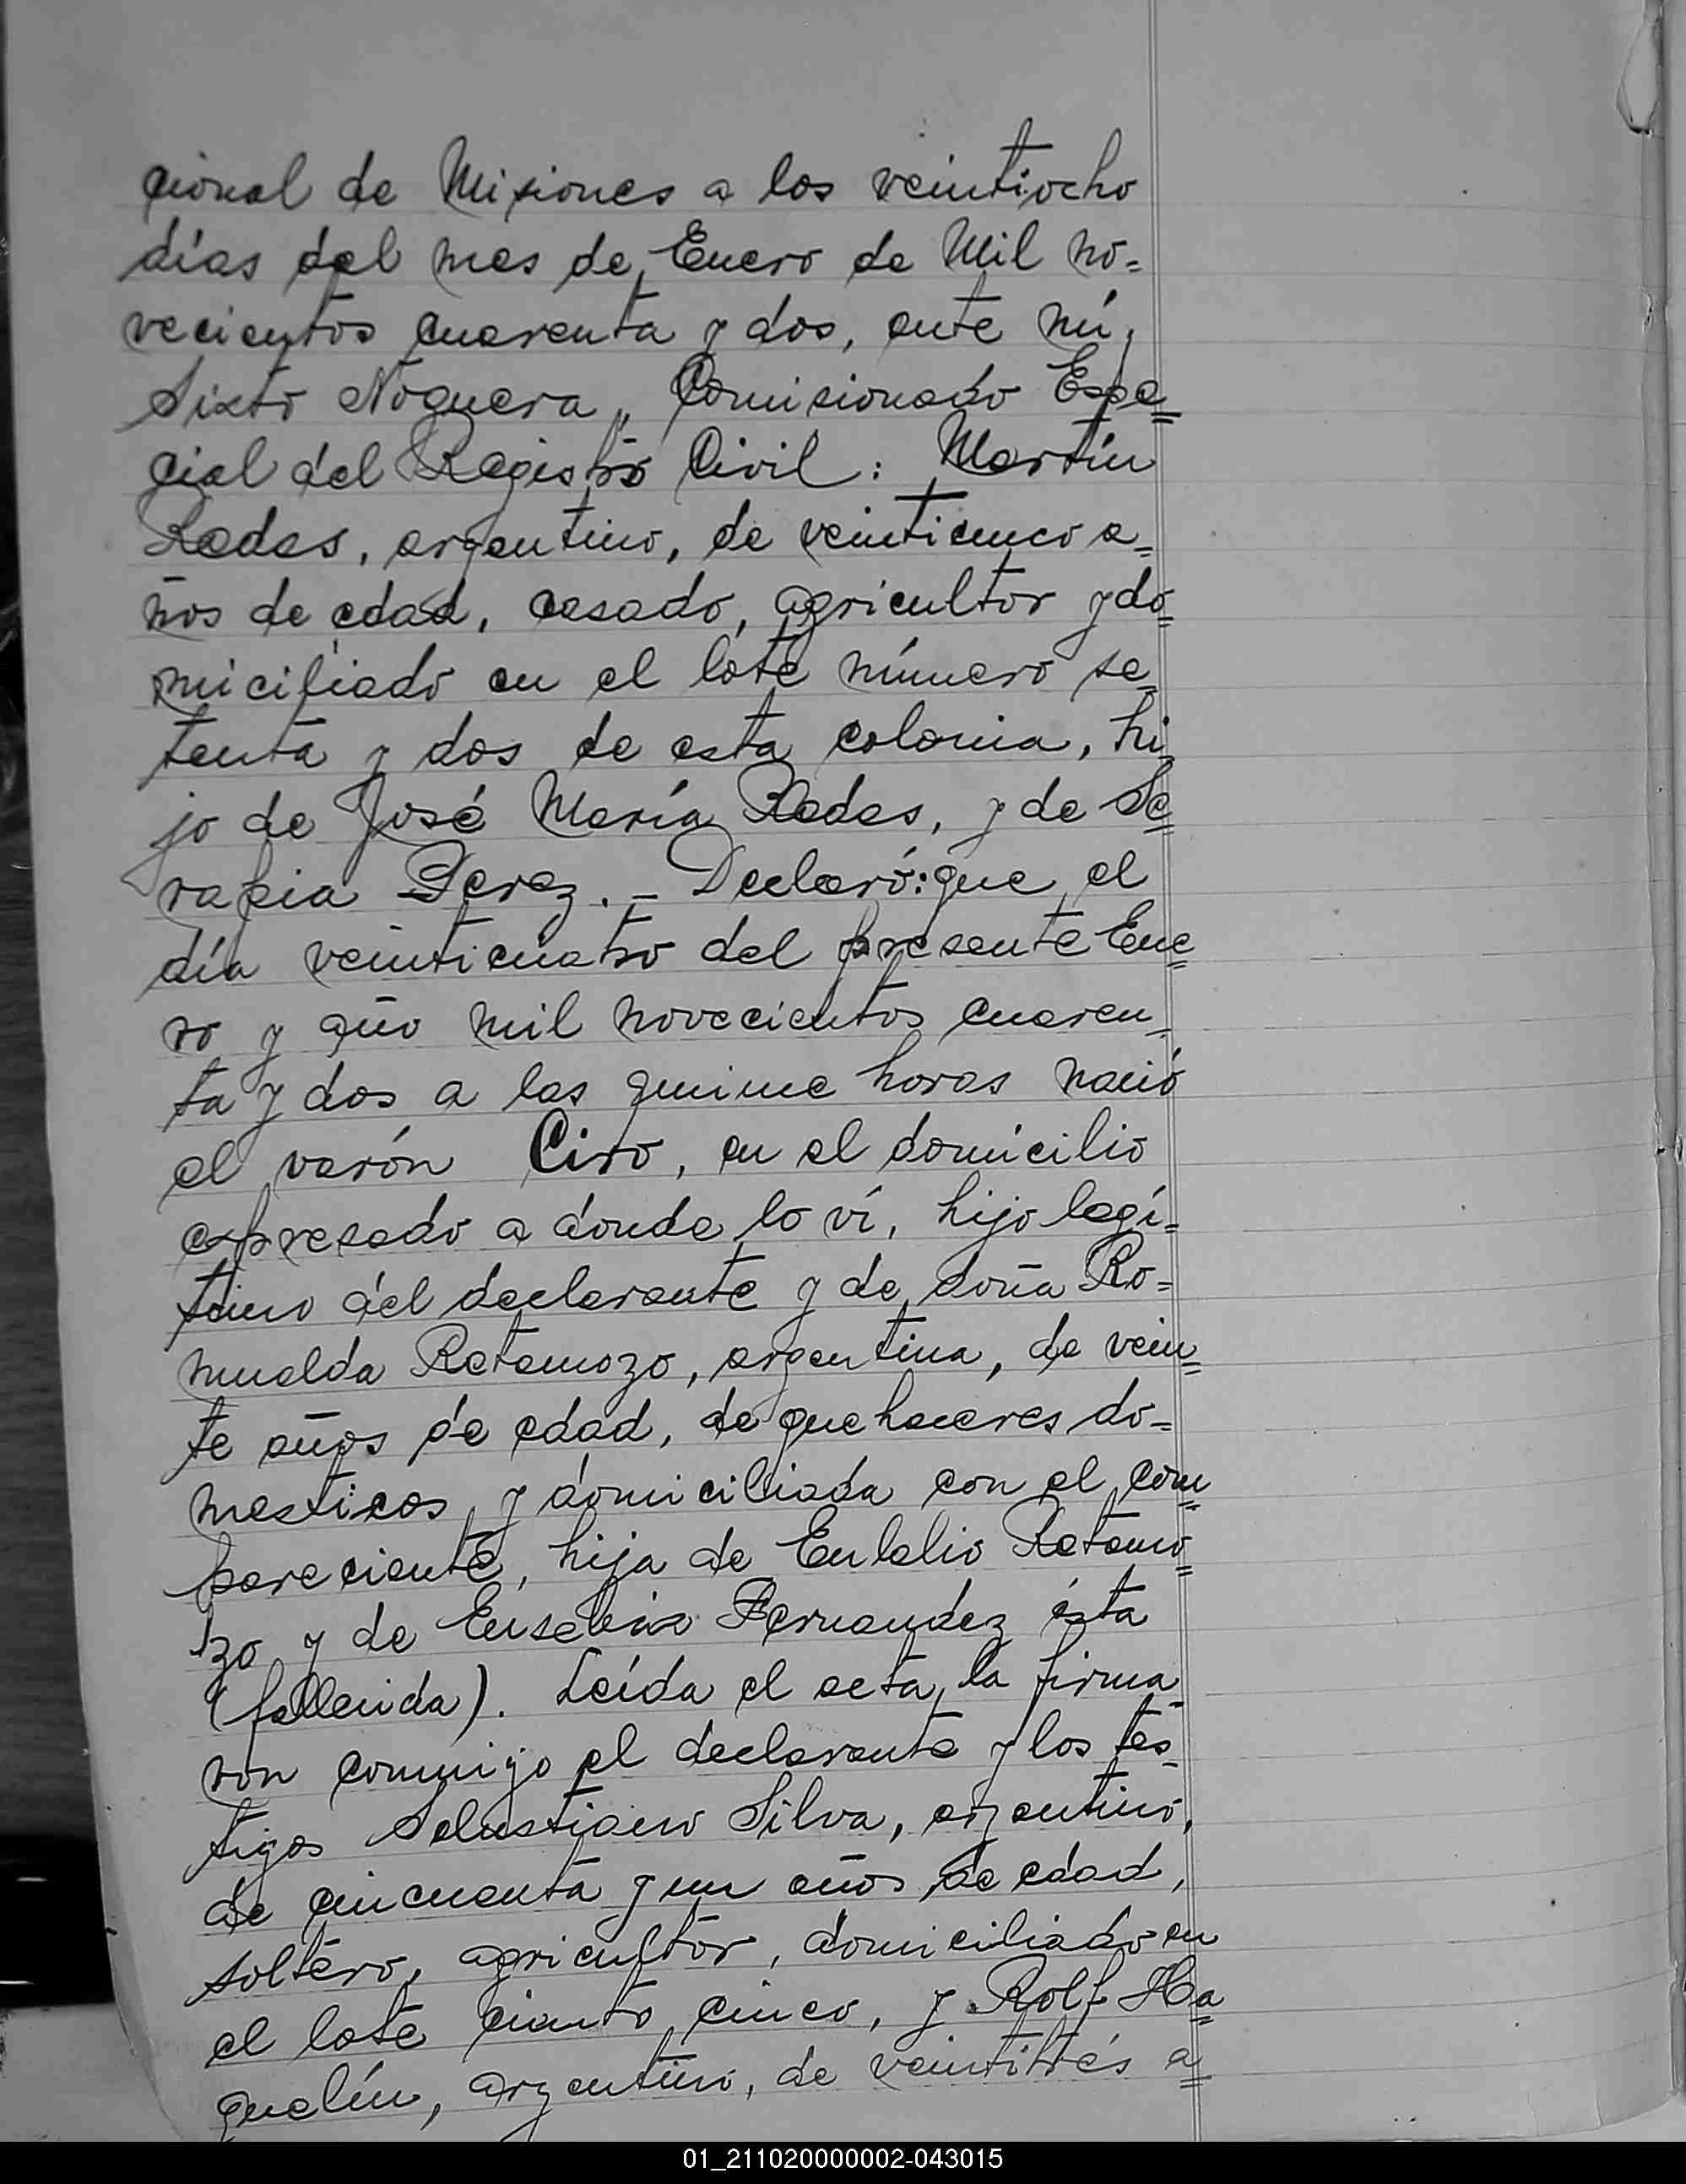 cional de Misiones a los veintiocho
días del mes de Enero de Mil no=
vecientos cuarenta y dos, ante mí,
Sixto Noguera, Comisionado Espe=
cial del Registro Civil: Martín
Rodas, argentino, de veinticinco a=
ños de edad, casado, agricultor y do=
miciliado en el lote número se=
tenta y dos de esta colonia, hi=
jo de José María Rodas, y de Se=
rapia Perez.- Declaró: que el
día veinticuatro del presente Ene=
ro y año mil novecientos cuaren=
ta y dos a las quince horas nació
el varón Ciro, en el domicilio
expresado a donde lo ví, hijo legí=
timo del declarante y de doña Ro=
mualda Retamozo, argentina, de vein=
te años de edad, de quehaceres do=
mesticos, y domiciliada con el com=
pareciente, hija de Eulalio Retamo=
zo y de Eusebia Fernandez ésta
(fallecida). Leída el acta, la firma
ron conmigo el declarante y los tes=
tigos Silva, argentino,
de cincuenta y un años de edad,
soltero, agricultor, domiciliado en
el lote ciento cinco, y Rolf Ha=
guelín, argentino, de veintitrés a=
01_211020000002-043015